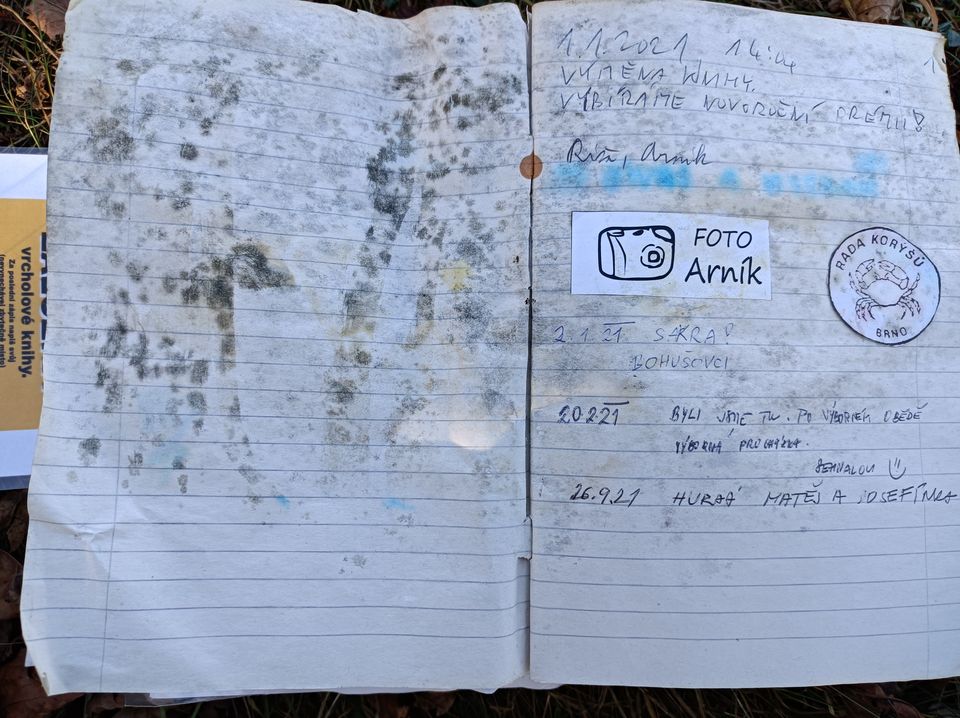 vrcholové knihy.
Za poslední zápis napiš svůj
1
1.1.2021 14:04
VÝMĚNA KNIHY.
VYBÍRÁME NOVOROČNÍ PRÉMII!
Ríša, Arník
FOTO
Arník
RADA KORÝŠŮ
BRNO
2.1.21 SAKRA!
BOHUŠOVCI
20.2.21 BYLI JSME TU. PO VÝBORNÉM OBĚDĚ
VÝBORNÁ PROCHÁZKA.
26.9.21 HURÁÁ MATĚJ A JOSEFÍNKA